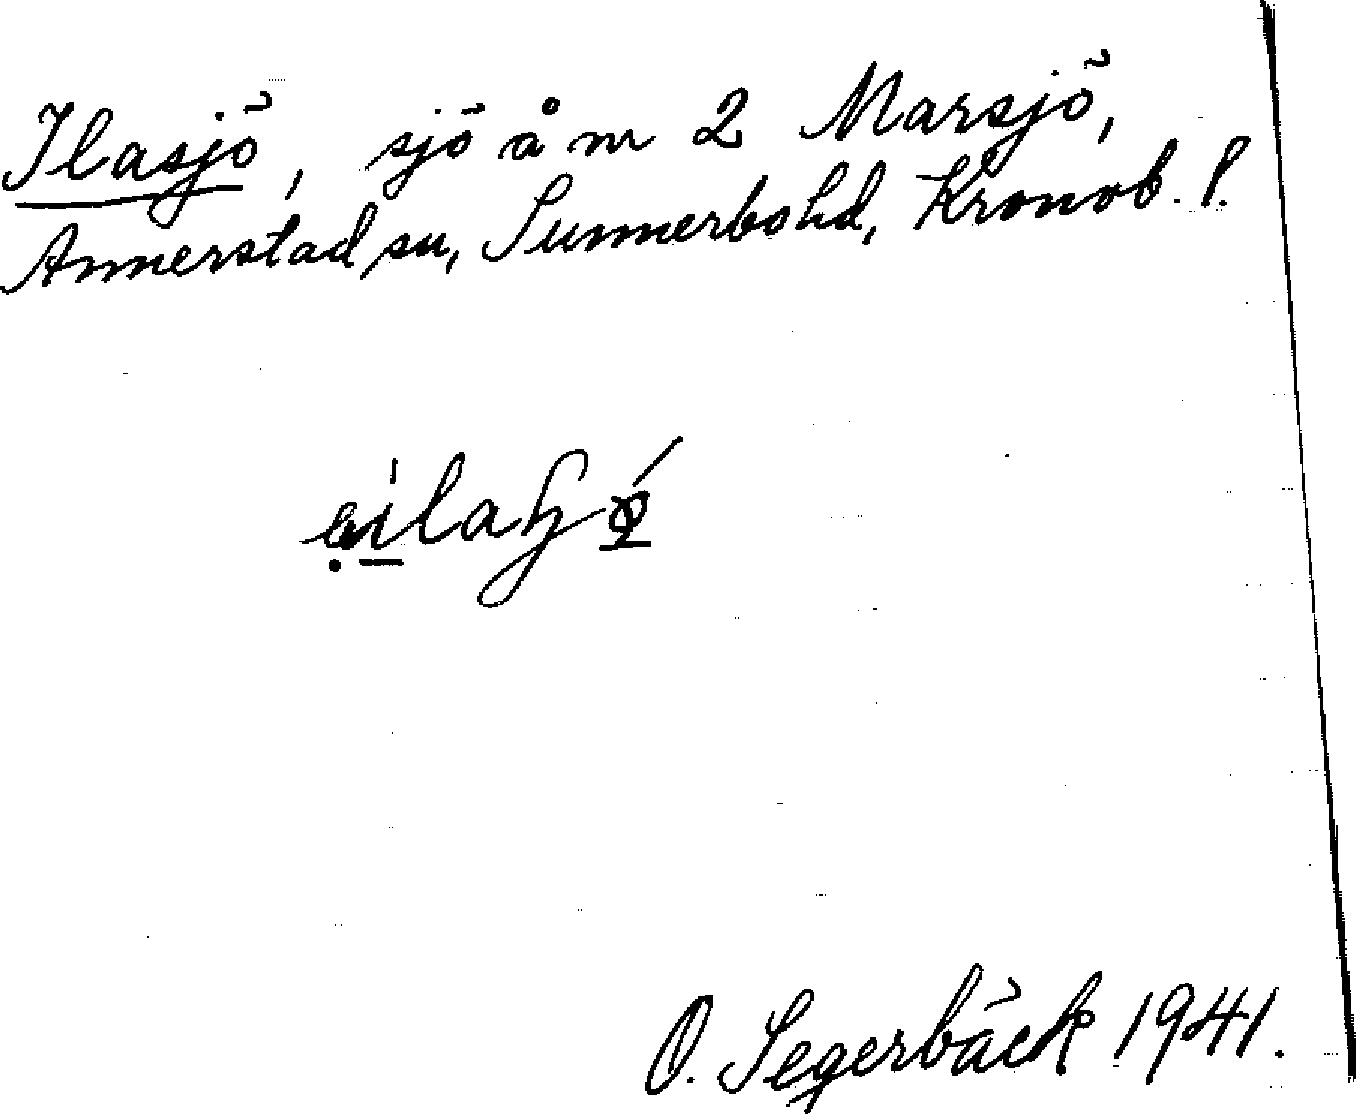 Ilasjö, sjö å nr 2 Marsjö,
Annerstad sn, Sunnerbo hd, Kronob. l.
O. Segerbäck 1941.